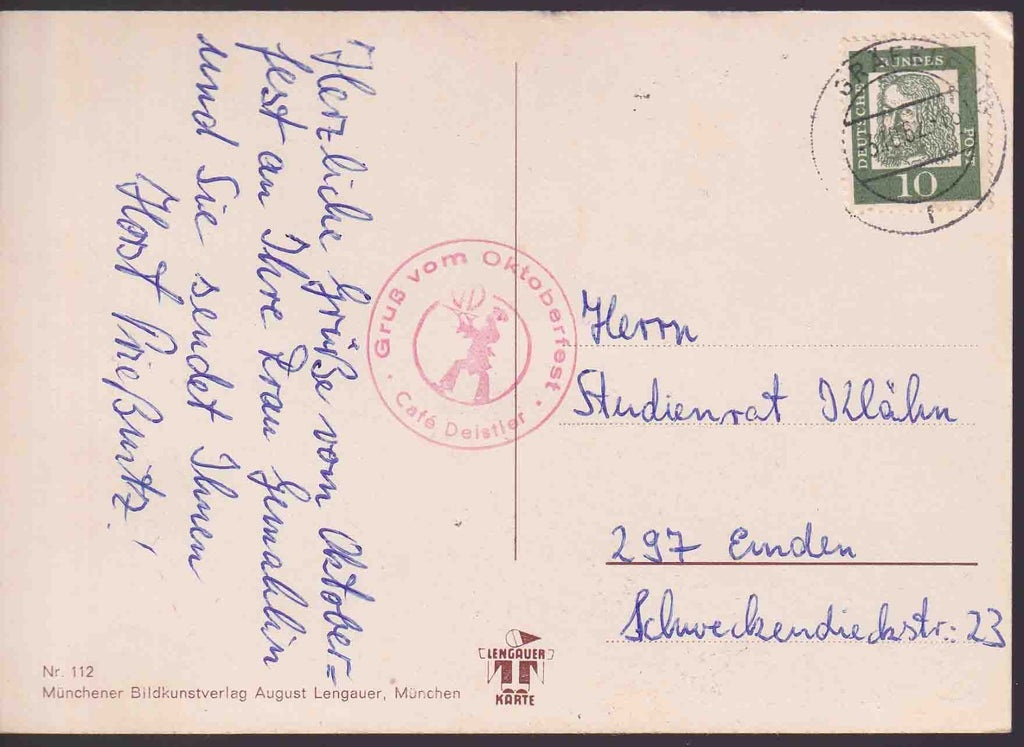 Herzliche Grüße vom Oktober=
fest an Ihre Frau Gemahlin
und Sie sendet Ihnen
Horst Prießnitz!
Gruß vom Oktoberfest
Café Deistler
DEUTSCHE
BUNDES
POST
10
Herrn
Studienrat Klähn
297 Emden
Schweckendieckstr. 23
Nr. 112
Münchener Bildkunstverlag August Lengauer, München
LENGAUER
KARTE